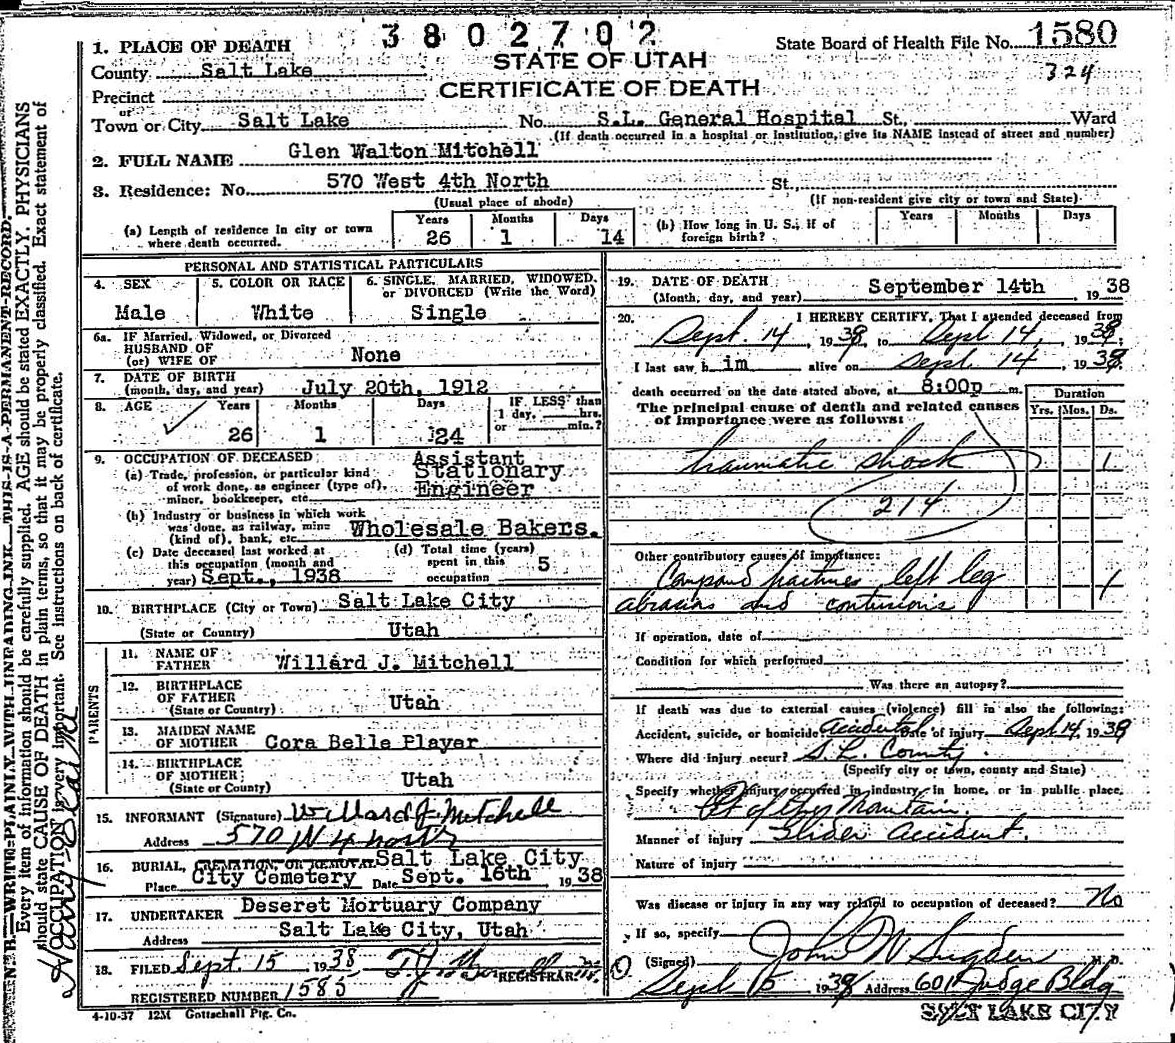 3802702
State Board of Health File No. 1580
324
STATE OF UTAH
CERTIFICATE OF DEATH
1. PLACE OF DEATH
County Salt Lake
Precinct
or
Town or City Salt Lake No. S.L. General Hospital St., Ward
(If death occurred in a hospital or institution, give its NAME instead of street and number)
2. FULL NAME Glen Walton Mitchell
3. Residence: No. 570 West 4th North St.,
(Usual place of abode) (If non-resident give city or town and State)
(a) Length of residence in city or town where death occurred. Years 26 Months 1 Days 14
(b) How long in U. S., if of foreign birth? Years Months Days
PERSONAL AND STATISTICAL PARTICULARS
4. SEX Male
5. COLOR OR RACE White
6. SINGLE, MARRIED, WIDOWED, or DIVORCED (Write the Word) Single
6a. IF Married, Widowed, or Divorced
HUSBAND OF
(or) WIFE OF None
7. DATE OF BIRTH
(month, day, and year) July 20th, 1912
8. AGE Years 26 Months 1 Days 24 IF LESS than 1 day, hrs. or min.?
9. OCCUPATION OF DECEASED
(a) Trade, profession, or particular kind of work done, as engineer (type of), miner, bookkeeper, etc. Assistant Stationary Engineer
(b) Industry or business in which work was done, as railway, mine (kind of), bank, etc. Wholesale Bakers.
(c) Date deceased last worked at this occupation (month and year) Sept., 1938
(d) Total time (years) spent in this occupation 5
10. BIRTHPLACE (City or Town) Salt Lake City
(State or Country) Utah
PARENTS
11. NAME OF FATHER Willard J. Mitchell
12. BIRTHPLACE OF FATHER
(State or Country) Utah
13. MAIDEN NAME OF MOTHER Cora Belle Player
14. BIRTHPLACE OF MOTHER
(State or Country) Utah
15. INFORMANT (Signature) Willard J. Mitchell
Address 570 W 4 North
16. BURIAL, CREMATION, OR REMOVAL Salt Lake City
Place City Cemetery Date Sept. 16th 1938
17. UNDERTAKER Deseret Mortuary Company
Address Salt Lake City, Utah
18. FILED Sept. 15 1938, REGISTRAR.
REGISTERED NUMBER 1585
4-10-37 12M Gottschall Ptg. Co.
19. DATE OF DEATH
(Month, day, and year) September 14th, 1938
20. I HEREBY CERTIFY, That I attended deceased from
Sept. 14, 1938, to Sept 14, 1938,
I last saw him alive on Sept. 14, 1938.
death occurred on the date stated above, at 8:00p m.
The principal cause of death and related causes of importance were as follows:
Duration
Yrs. Mos. Ds.
traumatic shock 1
214
Other contributory causes of importance:
Compound fractures left leg 1
abrasions and contusions
If operation, date of
Condition for which performed
Was there an autopsy?
If death was due to external causes (violence) fill in also the following:
Accident, suicide, or homicide Accidental Date of injury Sept 14, 1938
Where did injury occur? S.L. County
(Specify city or town, county and State)
Specify whether injury occurred in industry, in home, or in public place.
Pt of the Mountain
Manner of injury Glider accident.
Nature of injury
Was disease or injury in any way related to occupation of deceased? No
If so, specify
(Signed) John W Sugden M. D.
Sept 15 1938 Address 601 Judge Bldg
SALT LAKE CITY
N. B.—WRITE PLAINLY WITH UNFADING INK—THIS IS A PERMANENT RECORD.
Every item of information should be carefully supplied. AGE should be stated EXACTLY. PHYSICIANS
should state CAUSE OF DEATH in plain terms, so that it may be properly classified. Exact statement of
OCCUPATION is very important. See instructions on back of certificate.